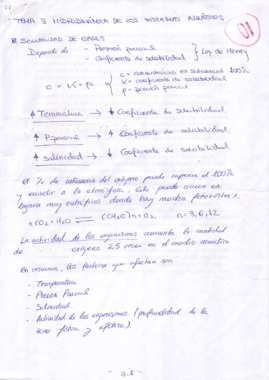 TEMA 3 HIDRODINÁMICA DE LOS SISTEMAS ACUÁTICOS
SOLUBILIDAD DE GASES
Depende de - Presión parcial
- Coeficiente de solubilidad
Ley de Henry
c = K * p
c = concentración en saturación 100%
K = coeficiente de solubilidad
p = presión parcial
↑ Temperatura → ↓ Coeficiente de solubilidad
↑ P. parcial → ↑ Coeficiente de solubilidad
↑ salinidad → ↓ Coeficiente de solubilidad
El % de saturación del oxígeno puede superar el 100%
y escindir a la atmósfera. Esto puede ocurrir en
lagunas muy eutróficas donde hay mucha fotosíntesis.
nCO2 + H2O ⇌ (CH2O)n + O2 n = 3, 6, 12
La actividad de los organismos aumenta la cantidad
de oxígeno 2,5 veces en el medio acuático
En resumen, los factores que afectan son:
- Temperatura
- Presión Parcial
- Salinidad
- Actividad de los organismos (profundidad de la
zona fótica y afótica)
- 3.1 -